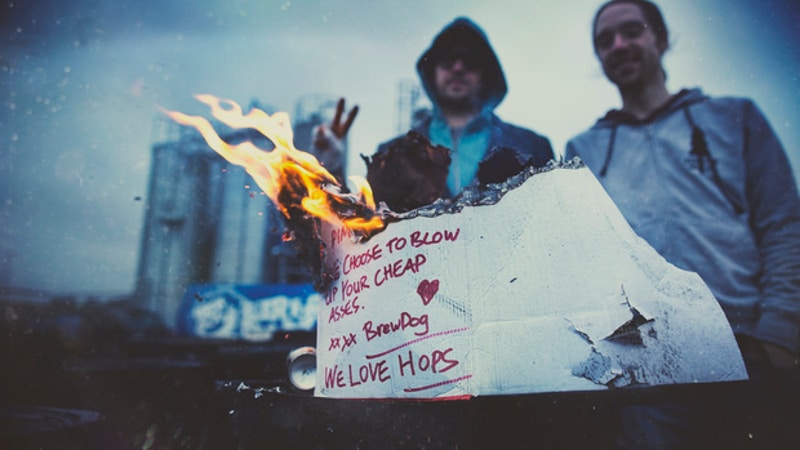 CHOOSE TO BLOW
UP YOUR CHEAP
ASSES.
xxxx BrewDog
WE LOVE HOPS